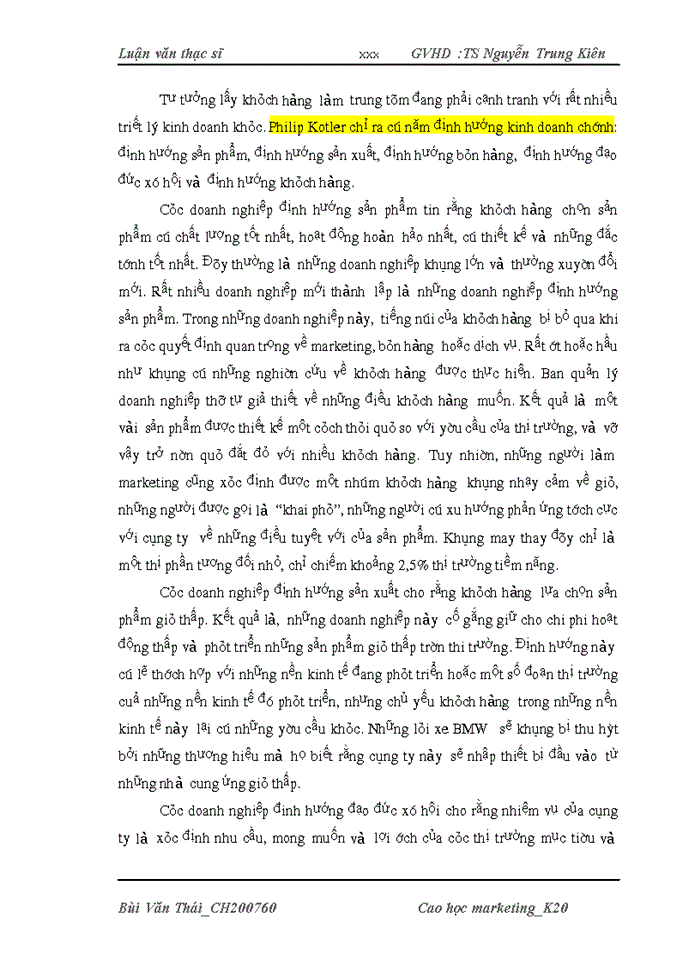 Luận văn thạc sĩ xxx GVHD :TS Nguyễn Trung Kiên
Tư tưởng lấy khỏch hàng làm trung tõm đang phải cạnh tranh với rất nhiều
triết lý kinh doanh khỏc. Philip Kotler chỉ ra cú năm định hướng kinh doanh chớnh:
định hướng sản phẩm, định hướng sản xuất, định hướng bỏn hàng, định hướng đạo
đức xó hội và định hướng khỏch hàng.
Cỏc doanh nghiệp định hướng sản phẩm tin rằng khỏch hàng chọn sản
phẩm cú chất lượng tốt nhất, hoạt động hoàn hảo nhất, cú thiết kế và những đắc
tớnh tốt nhất. Đõy thường là những doanh nghiệp khụng lớn và thường xuyờn đổi
mới. Rất nhiều doanh nghiệp mới thành lập là những doanh nghiệp định hướng
sản phẩm. Trong những doanh nghiệp này, tiếng núi của khỏch hàng bị bỏ qua khi
ra cỏc quyết định quan trọng về marketing, bỏn hàng hoặc dịch vụ. Rất ớt hoặc hầu
như khụng cú những nghiờn cứu về khỏch hàng được thực hiện. Ban quản lý
doanh nghiệp thỡ tự giả thiết về những điều khỏch hàng muốn. Kết quả là một
vài sản phẩm được thiết kế một cỏch thỏi quỏ so với yờu cầu của thị trường, và vỡ
vậy trở nờn quỏ đắt đỏ với nhiều khỏch hàng. Tuy nhiờn, những người làm
marketing cũng xỏc định được một nhúm khỏch hàng khụng nhạy cảm về giỏ,
những người được gọi là “khai phỏ”, những người cú xu hướng phản ứng tớch cực
với cụng ty về những điều tuyệt với của sản phẩm. Khụng may thay đõy chỉ là
một thị phần tương đối nhỏ, chỉ chiếm khoảng 2,5% thị trường tiềm năng.
Cỏc doanh nghiệp định hướng sản xuất cho rằng khỏch hàng lựa chọn sản
phẩm giỏ thấp. Kết quả là, những doanh nghiệp này cố gắng giữ cho chi phi hoạt
động thấp và phỏt triển những sản phẩm giỏ thấp trờn thi trường. Định hướng này
cú lẽ thớch hợp với những nền kinh tế đang phỏt triển hoặc một số đoạn thị trường
cuả những nền kinh tế đó phỏt triển, nhưng chủ yếu khỏch hàng trong những nền
kinh tế này lại cú những yờu cầu khỏc. Những lỏi xe BMW sẽ khụng bị thu hỳt
bởi những thương hiệu mà họ biết rằng cụng ty này sẽ nhập thiết bị đầu vào từ
những nhà cung ứng giỏ thấp.
Cỏc doanh nghiệp định hướng đạo đức xó hội cho rằng nhiệm vụ của cụng
ty là xỏc định nhu cầu, mong muốn và lợi ớch của cỏc thị trường mục tiờu và
Bùi Văn Thái_CH200760 Cao học marketing_K20